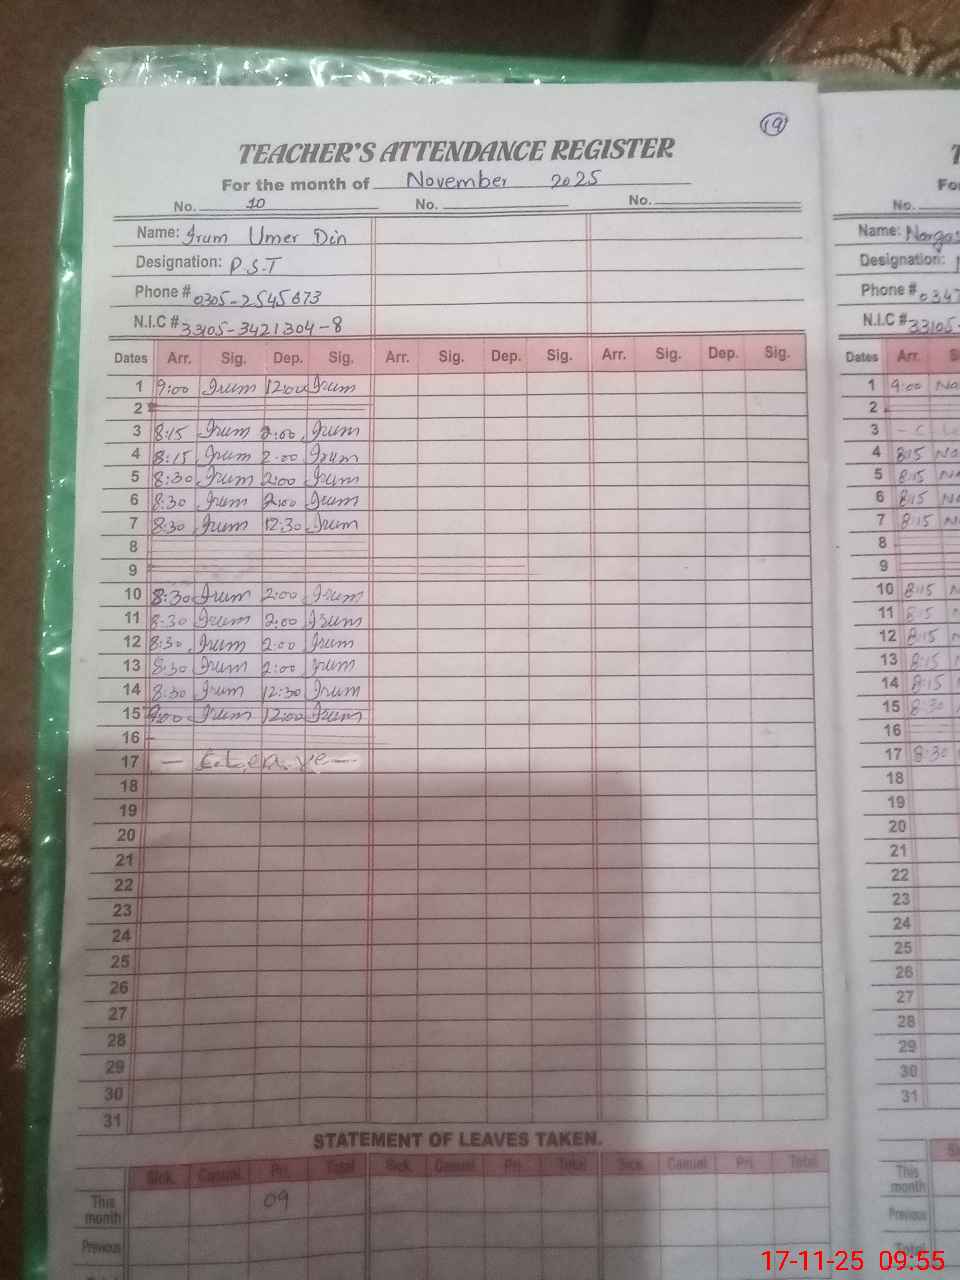 19
TEACHER'S ATTENDANCE REGISTER
For the month of November 2025
No. 10 No. No.
Name: Irum Umer Din
Designation: P.S.T
Phone # 0305-2545673
N.I.C # 33105-3421304-8
Dates Arr. Sig. Dep. Sig. Arr. Sig. Dep. Sig. Arr. Sig. Dep. Sig.
1 9:00 Irum 12:00 Irum
2
3 8:15 Irum 2:00 Irum
4 8:15 Irum 2:00 Irum
5 8:30 Irum 2:00 Irum
6 8:30 Irum 2:00 Irum
7 8:30 Irum 12:30 Irum
8
9
10 8:30 Irum 2:00 Irum
11 8:30 Irum 2:00 Irum
12 8:30 Irum 2:00 Irum
13 8:30 Irum 2:00 Irum
14 8:30 Irum 12:30 Irum
15 9:00 Irum 12:00 Irum
16
17 - C.Leave -
18
19
20
21
22
23
24
25
26
27
28
29
30
31
STATEMENT OF LEAVES TAKEN.
Sick. Casual. Pri. Total Sick. Casual. Pri. Total Sick. Casual. Pri. Total
This month 09
Previous
Total
No.
Name:
Designation:
Phone # 0347
N.I.C # 33105-
Dates Arr.
1 9:00
2
3 - C
4 8:15
5 8:15
6 8:15
7 8:15
8
9
10 8:15
11 8:15
12 8:15
13 8:15
14 8:15
15 8:30
16
17 8:30
18
19
20
21
22
23
24
25
26
27
28
29
30
31
This month
Previous
Total
17-11-25 09:55